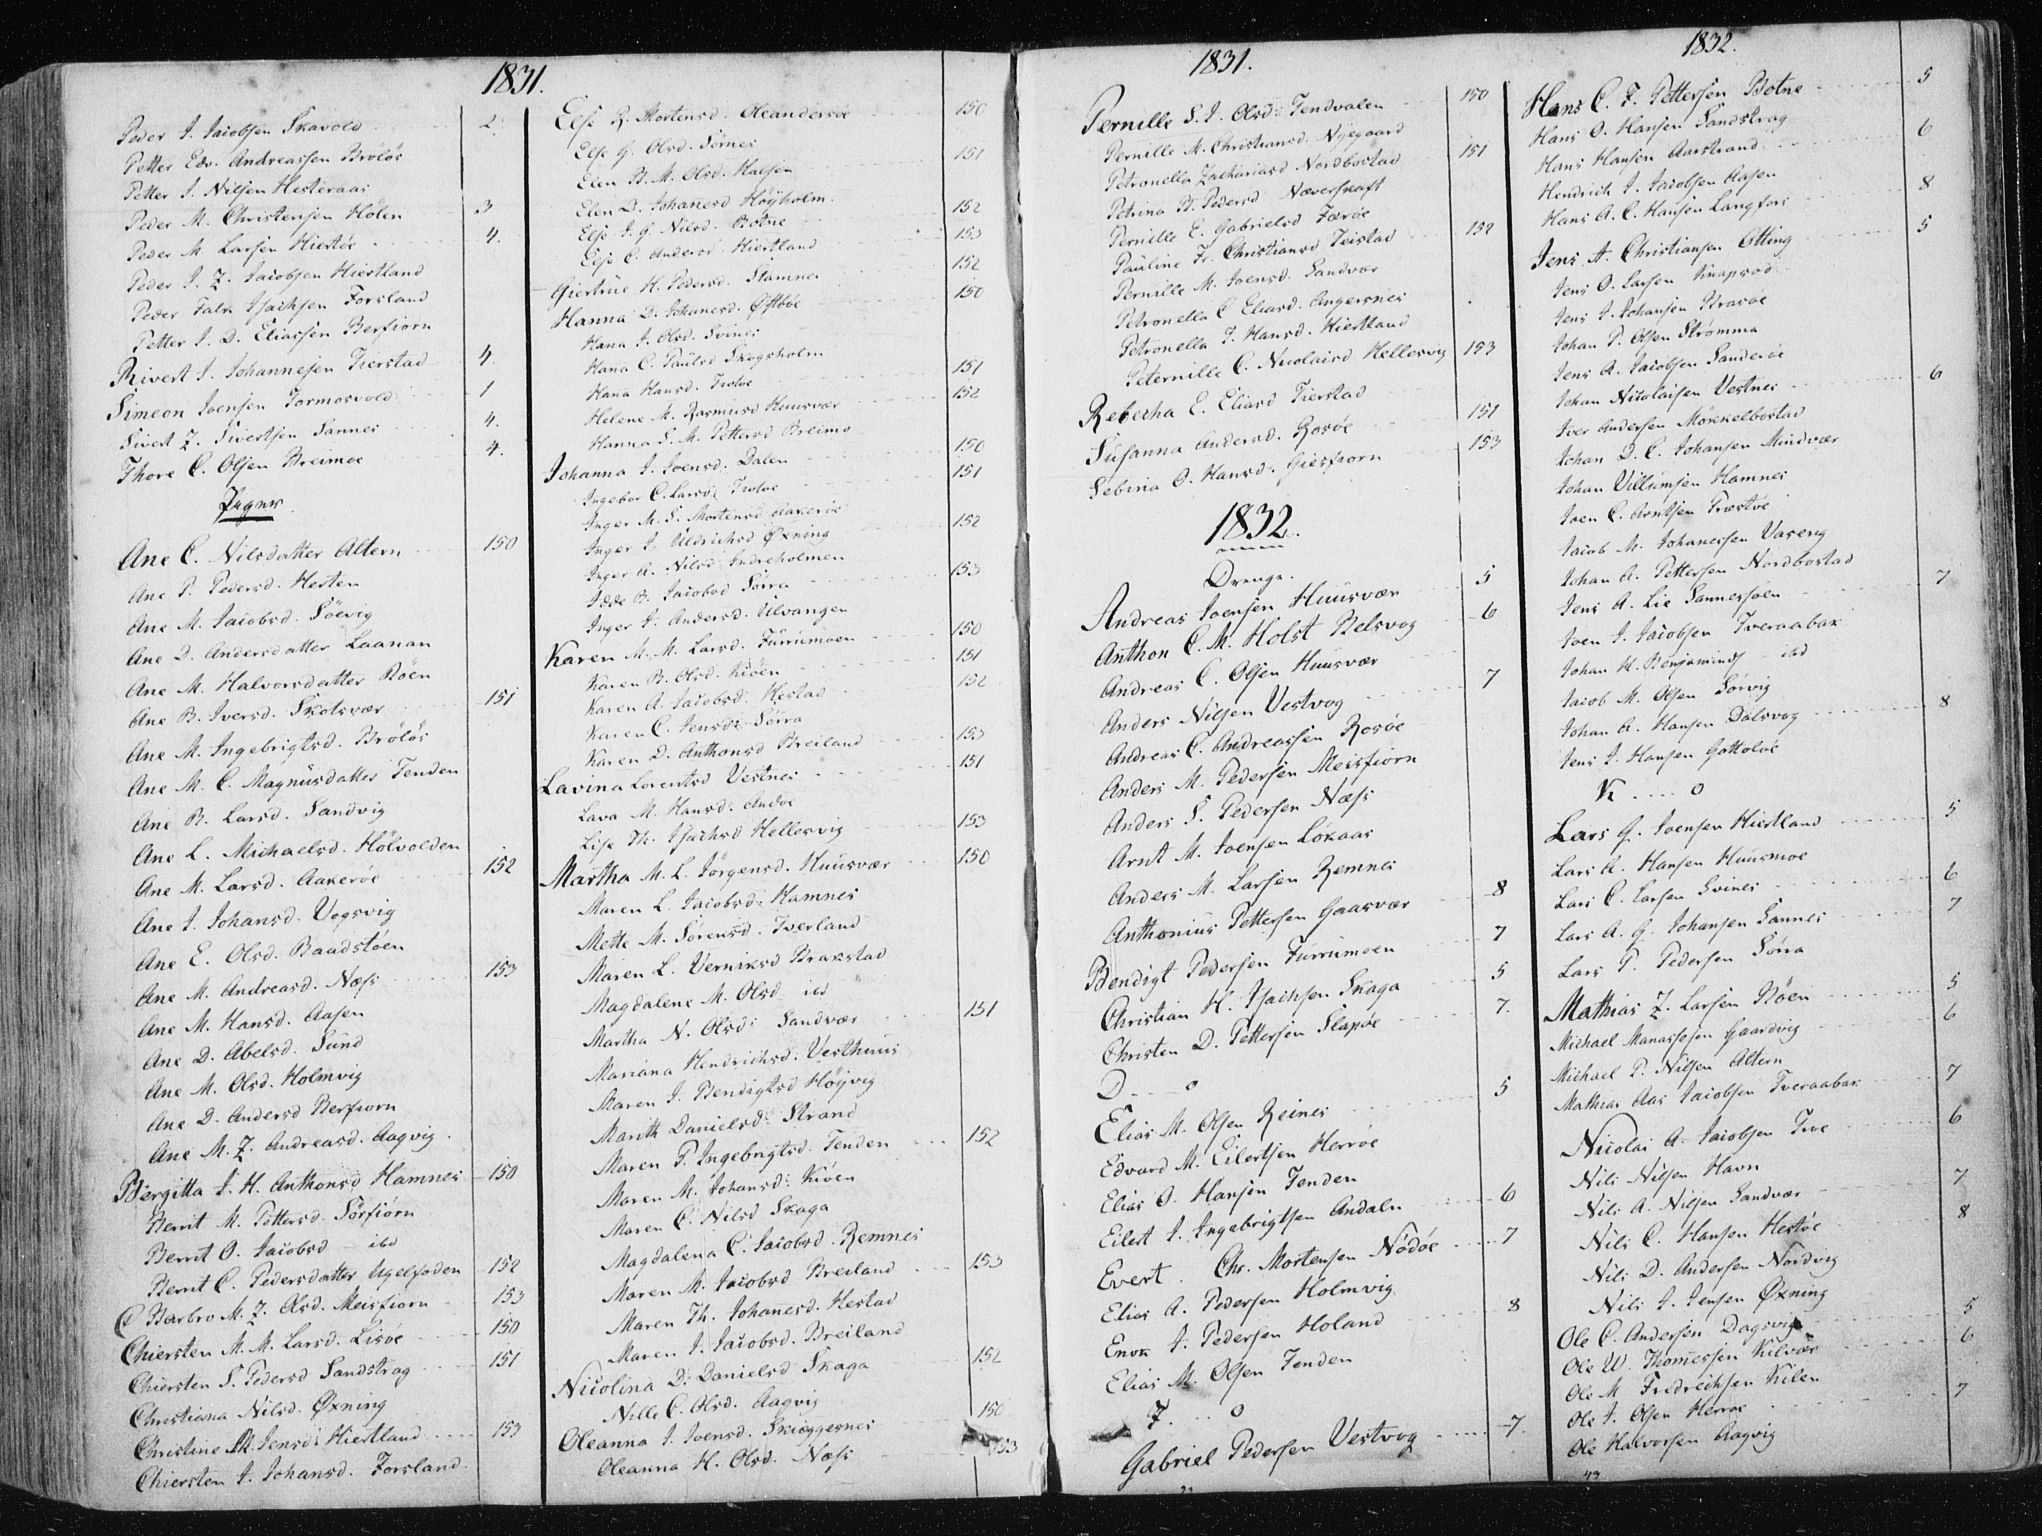 1831.
Peder J. Jacobsen Skavold 2.
Petter Edv. Andreassen Broløs
Petter J. Nilsen Hesteraas
Peder M. Christensen Hølen 3
Peder M Larsen Hiestøe 4.
Peder J. Z. Jacobsen Hiertland
Peder Falk Isachsen Forsland
Petter J. D. Eliassen Berfiorn
Rivert J. Johannesen Tierstad 4.
Simeon Joensen Tormosvold 1
Sivert Z. Sivertsen Sannes 4.
Thore C. Olsen Breimoe 4.
Piger
Ane C. Nilsdatter Altern 150
Ane P. Pedersd. Hesten
Ane M. Jacobsd. Söevig
Ane D. Andersdatter Laanan
Ane M. Halvorsdatter Röen
Ane B. Iversd. Skotsvær 151
Ane M. Ingebrigtsd. Bröløs
Ane M. C. Magnusdatter Tenden
Ane B. Larsd. Sandvig
Ane L. Michaelsd. Hölvolden
Ane M. Larsd. Aakerøe 152
Ane J. Johansd. Vogsvig
Ane E. Olsd. Baadstøen
Ane M. Andreasd. Næss 153
Ane M. Hansd. Aasen
Ane D. Abelsd. Sund
Ane M. Olsd. Holmvig
Ane D. Andersd Berfiorn
Ane M. Z. Andreasd. Aagvig.
Bergitta J. H. Anthonsd Hamnes 150
Berrit M. Pettersd. Sörfiorn
Berrit O. Jacobsd ibd
Berrit C. Pedersdatter Ugelfoden 152
C Barbro M. Z. Olsd. Meisfiorn 153
Chiersten M. M. Larsd. Lisöe 150
Chiersten S. Pedersd Sandstrag 151
Christiana Nilsd. Øxning
Christine M. Jensd: Hiertland 153
Chiersten J. Johansd. Forsland.
Else R. Mortensd. Oleandersøe 150
Else G. Olsd. Sörnes
Elen B. M. Olsd. Halsen 151
Elen D. Johansd Höyholm.
Else J. G. Nilsd. Botne 152
Else C. Andersd. Hiertland 153
Giertrue H. Pedersd. Stamnes 152
Hanna D. Johanesd. Østbøe 150
Hana J. Olsd. Svines
Hana C. Paulsd Skogsholm
Hana Hansd. Troloe 151
Helene M. Rasmusd Huusvær 152
Hanna S. M. Pettersd Breimo
Johanna J. Joensd. Dalen 150
Ingebor C. Larsd: Troloe 151
Inger M. S. Mortensd Aakerøe
Inger J. Uldrichsd Øxning 152
Inger A. Nilsd. Indreholmen
Idde B. Jacobsd Sörra 153
Inger J. Andersd. Ulvangen
Karen M. M. Larsd. Furrumoen 150
Karen B. Olsd. Kiöen 151
Karen A. Jacobsd. Hestad 152
Karen C. Jensd: Sörra
Karen D. Anthonsd Breiland 153
Lavina Lorentsd Vestnes 151
Lava M. Hansd: Andøe
Lise Th. Isachsd Hellesvig 153
Martha M. L. Jörgensd. Huusvær 150
Maren L. Jacobsd: Hamnes
Mette M. Sörensd. Tverland
Maren L. Verniksd Brakstad
Magdalene M. Olsd ibd
Martha N. Olsd: Sandvær 151
Mariana Hendrichsd: Vesthuus
Maren J. Bendigtsd Höyvig
Marith Danielsd: Strand
Maren P. Ingebrigtsd. Tenden 152
Maren M. Johansd: Kiöen
Maren C. Nilsd Skaga
Magdalena C. Jacobsd. Remnes
Maren M. Jacobsd Breiland 153
Maren Th. Johanesd. Hestad
Maren J. Jacobsd. Breiland
Nicolina D. Danielsd Skaga 152
Nille C. Olsd. Aagvig
Oleanna J. Joensd. Skieggesnes 150
Oleanna H. Olsd. Næss 153
1831.
Pernille S. J. Olsd: Tendvalen 150
Pernille M. Christiansd. Nyegaard
Petronella Zachariasd Nordbostad 151
Petrina B. Pedersd Næverskaft
Pernille E. Gabrielsd Færøe
Pauline Fr. Christiansd Teistad 152
Pernille M. Joensd. Sandvær
Petronella C Eliasd. Angersnes
Petronella J. Hansd. Hiertland
Peternille C. Nicolaisd Hellesvig 153
Rebecha E. Eliasd Tierstad
Susanna Andersd. Rosöe 151
Sebina O. Hansd. Giesfiorn 153
1832.
Drenge.
Andreas Joensen Huusvær 5
Anthon C. M. Holst Belsvog 6
Andreas C. Olsen Huusvær
Anders Nilsen Vestvog 7
Andreas C. Andreassen Rosöe
Anders M. Pedersen Meisfiorn
Anders S. Pedersen Næss
Arnt M. Joensen Lökaas
Anders M. Larsen Remnes
Anthonius Pettersen Gaasvær 8
Bendigt Pedersen Furrumoen 7
Christian H. Isachsen Skaga 5
Christen D. Pettersen Slapöe 7.
D . . . o
Elias M. Olsen Reines 5
Edvard M. Eilertsen Herröe
Elias O. Hansen Tenden
Eilert J. Ingebrigtsen Andaln 6
Evert. Chr. Mortensen Nödöe 7
Elias A. Pedersen Holmvig
Enok J. Pedersen Holand 8
Elias M. Olsen Tenden
F. . . o
Gabriel Pedersen Vestvog 7.
1832.
Hans C. F. Pettersen Botne 5
Hans O. Hansen Sandstrag
Hans Hansen Aarstrand 6
Hendrich J. Jacobsen Aasen
Hans A. C. Hansen Langfors 8
Jens A. Christiansen Otting 5
Jens O. Larsen Knapsad
Jens J. Johansen Straröe
Johan P. Olsen Strömma
Jens A. Jacobsen Sanderöe
Johan Nicolaisen Vestnes 6
Iver Andersen Mökkelbostad
Johan D. C. Johansen Mindvær
Johan Villumsen Hamnes
Joen C. Arntsen Træstöe
Jacob M. Johanessen Vaseng
Johan A. Pettersen Nordbostad
Jens A. Lie Sannessoen 7
Joen J. Jacobsen Tveraabak
Johan H. Benjamins ibd
Jacob M. Olsen Sörvig
Johan A. Hansen Dalsvog 8
Jens J. Hansen Gottoløe
K . . . . o
Lars G. Joensen Hiertland 5
Lars A. Hansen Huusmoe
Lars C. Larsen Svines 6
Lars A. G. Johansen Sannes 7
Lars P. Pedersen Sörra
Mathias Z. Larsen Röen 5
Michael Manassesen Gaardvig 6
Michael P. Nilsen Altern
Mathias Aas Jacobsen Tveraabak 7
Nicolai A. Jacobsen Troe 6
Nils Nilsen Havn
Nils A. Nilsen Sandvær 7
Nils C. Hansen Hestöe 8
Nils D. Andersen Nordvig
Nils J. Jensen Øxning
Ole C. Andersen Dagsvig 5
Ole W. Thomessen Kilvær 6
Ole M Fredrichsen Kilen
Ole J. Olsen Herröe 7
Ole Halvorsen Aagvig